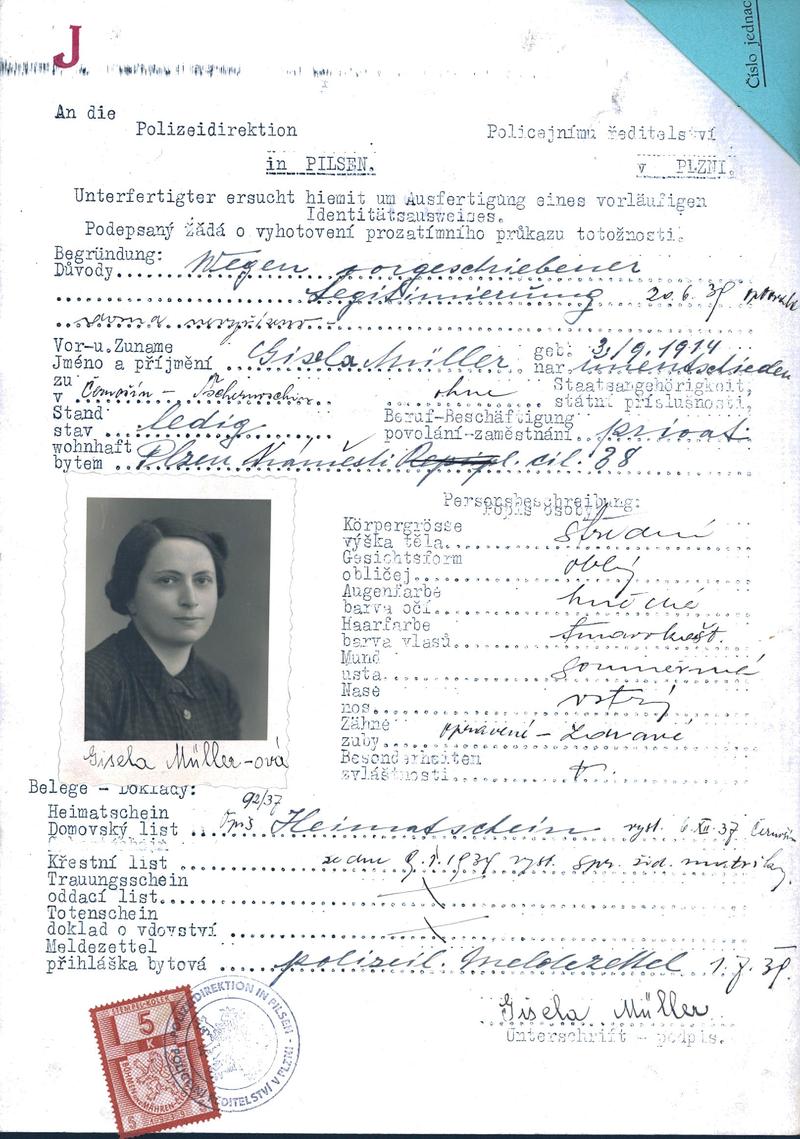 J
Číslo jednac
An die
Polizeidirektion
in PILSEN.
Policejnímu ředitelství
v PLZNI.
Unterfertigter ersucht hiemit um Ausfertigung eines vorläufigen
Identitätsausweises.
Podepsaný žádá o vyhotovení prozatímního průkazu totožnosti.
Begründung:
Důvody Wegen vorgeschriebener
Legitimierung 20.6.39
Vor-u.Zuname geb. 3/9.1914
Jméno a příjmení Gisela Müller nar. unentschieden
zu Staatsangehörigkeit,
v Černošín - Tschernoschin ohne státní příslušností,
Stand Beruf-Beschäftigung
stav ledig povolání-zaměstnání privat
wohnhaft
bytem Plzen Náměstí čil. 38
Personsbeschreibung:
Popis osoby
Körpergrösse
výška těla střední
Gesichtsform
obličej oblý
Augenfarbe
barva očí hnědé
Haarfarbe
barva vlasů tmavokašt.
Mund
ústa souměrná
Nase
nos
Zähne
zuby opravené - zdravé
Besonderheiten
zvláštnosti
Gisela Müller-ová
Belege - Doklady:
92/37
Heimatschein
Domovský list Opis Heimatschein vyst. 6.XII.37 Černošín
Křestní list ze dne vyst. žid. matriky
Trauungsschein
oddací list
Totenschein
doklad o vdovství
Meldezettel
přihláška bytová polizeil. Meldezettel
Gisela Müller
Unterschrift - podpis.
STEMPEL-KOLEK
5
K
BÖHMEN MÄHREN
POLIZEIDIREKTION IN PILSEN - POLICEJNÍ ŘEDITELSTVÍ V PLZNI